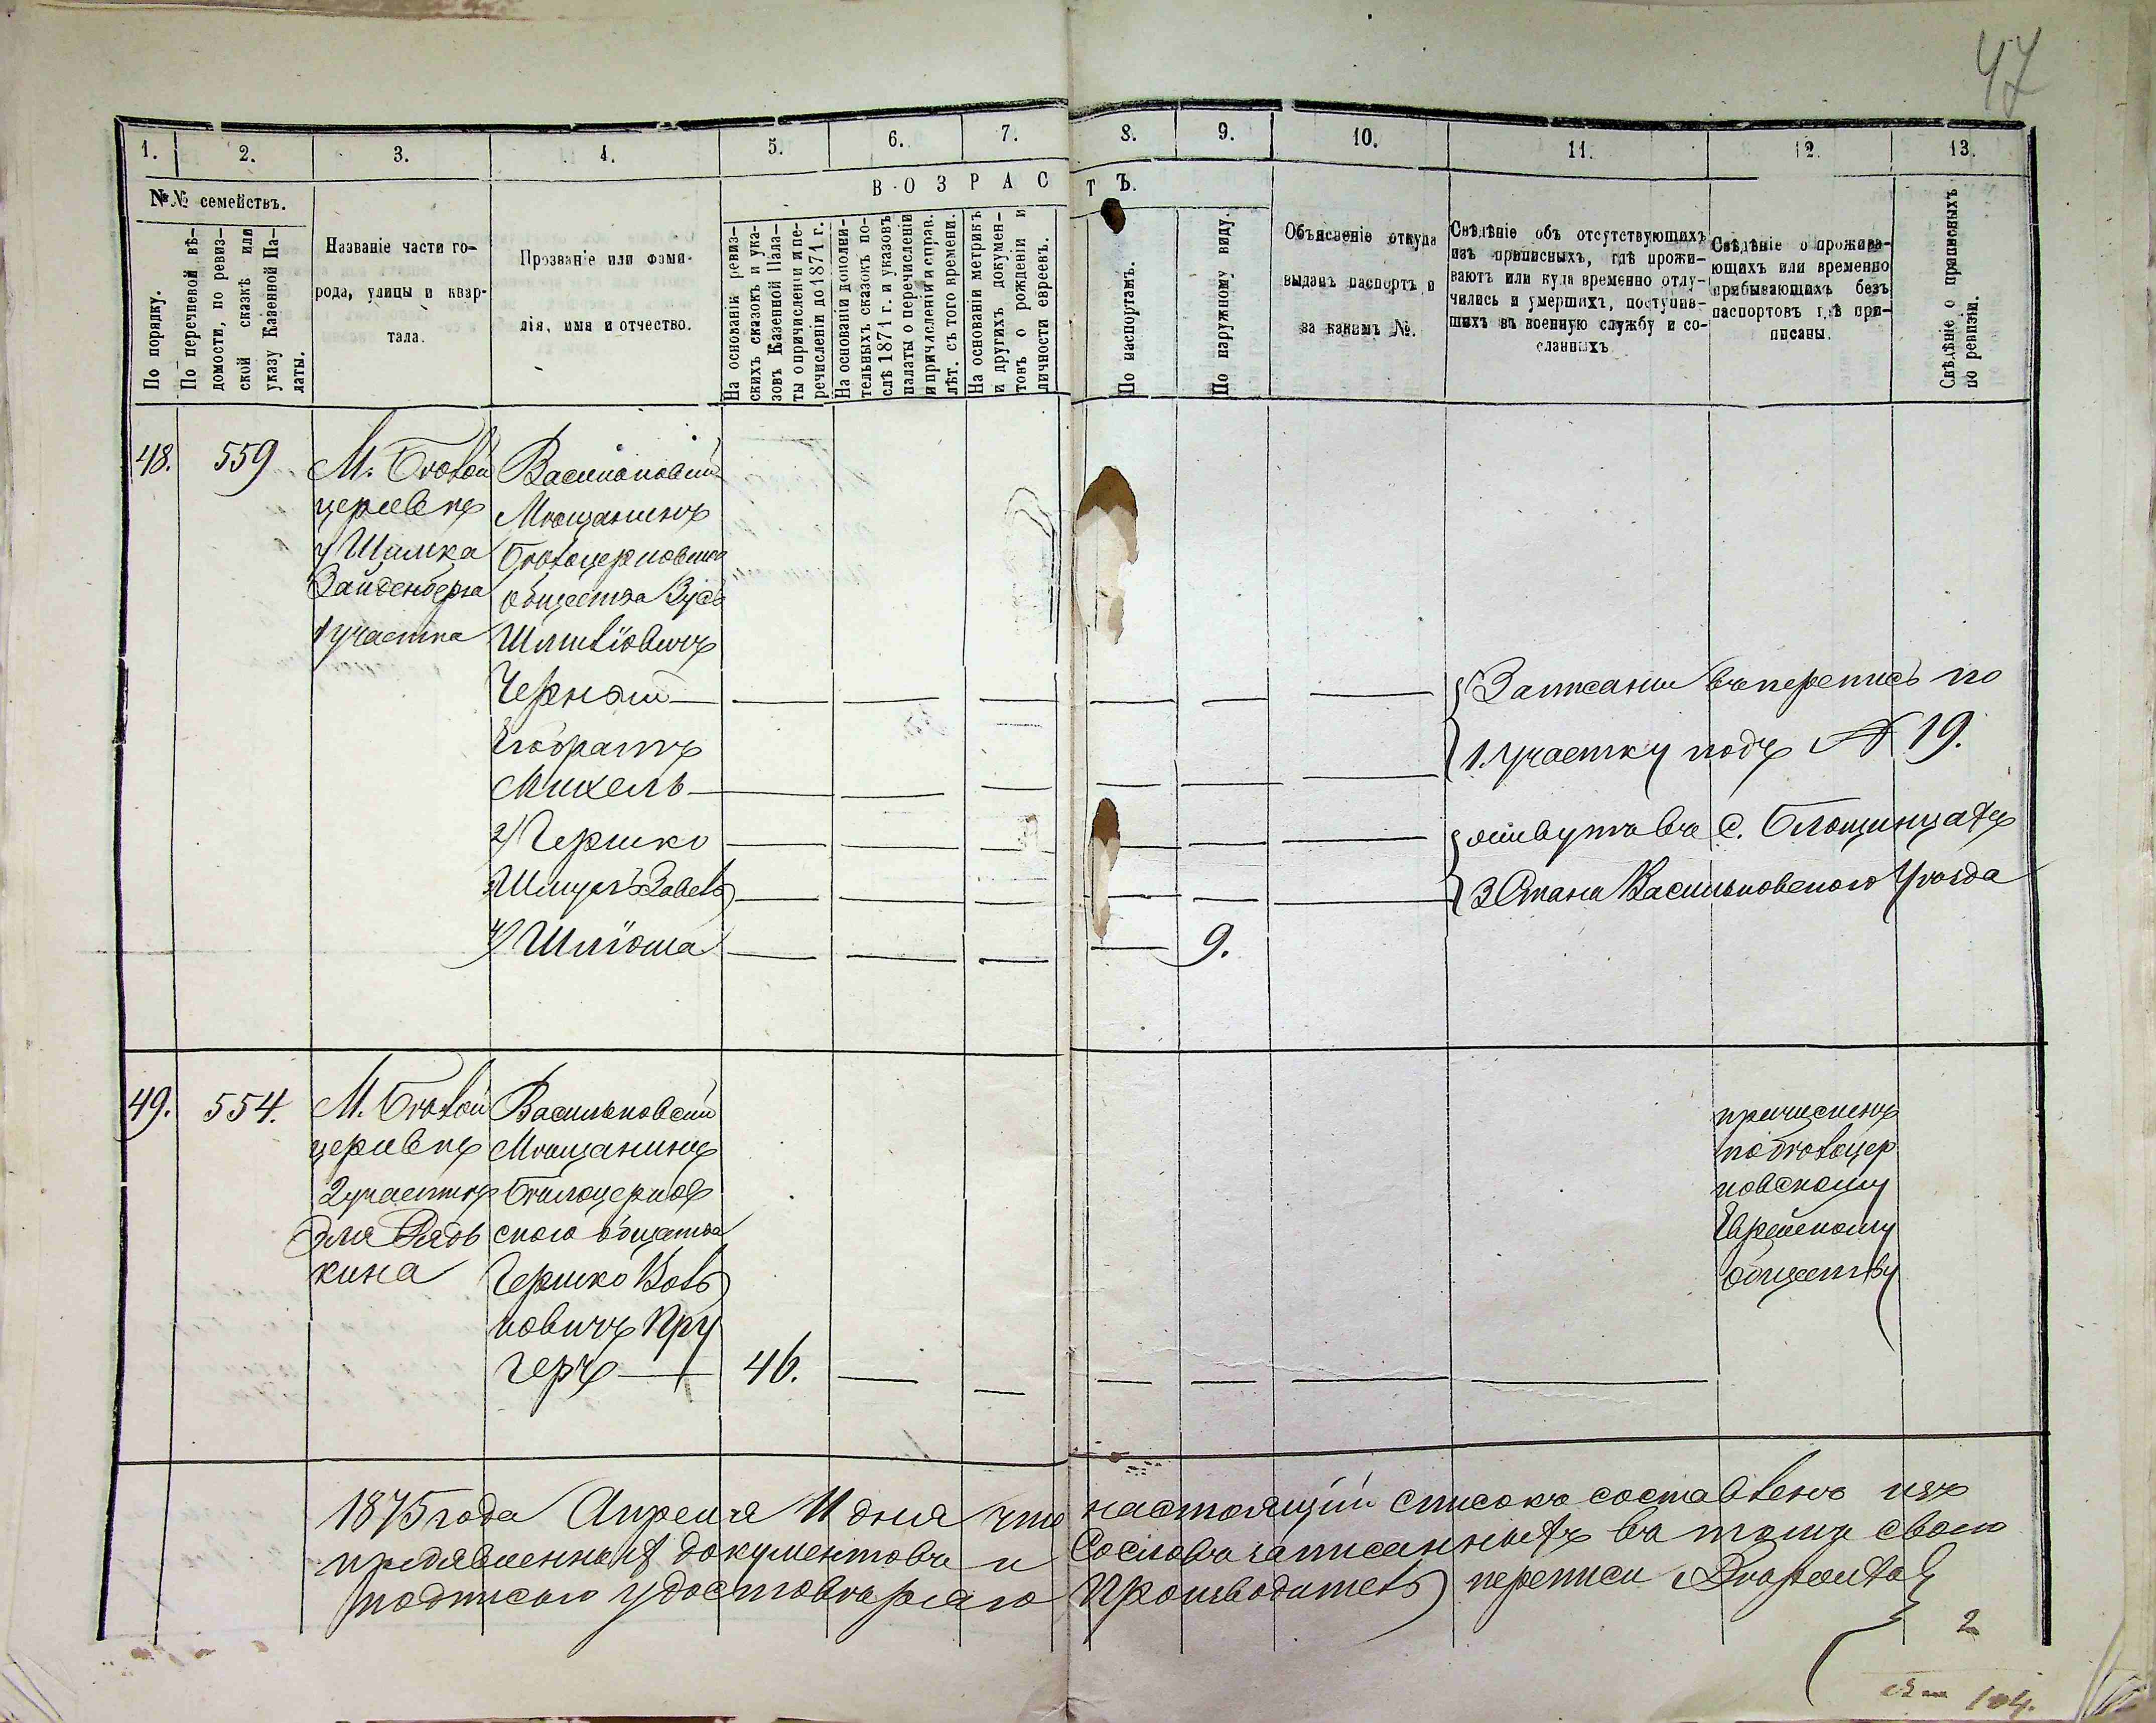 47
1. 2. 3. 4. 5. 6. 7. 8. 9. 10. 11. 12. 13.
№№ семействъ.
По порядку.
По перечневой вѣ-
домости, по ревиз-
ской сказкѣ или
указу Казенной Па-
латы.
Названіе части го-
рода, улицы и квар-
тала.
Прозваніе или фами-
лія, имя и отчество.
ВОЗРАСТЪ.
На основаніи ревиз-
скихъ сказокъ и ука-
зовъ Казенной Пала-
ты о причисленіи и пе-
речисленіи до 1871 г.
На основаніи дополни-
тельныхъ сказокъ по-
слѣ 1871 г. и указовъ
палаты о перечисленіи
и причисленіи и справ.
лѣт. съ того времени.
На основаніи метрикъ
и другихъ докумен-
товъ о рожденіи и
личности евреевъ.
По паспортамъ.
По наружному виду.
Объясненіе откуда
выданъ паспортъ и
за какимъ №.
Свѣдѣніе объ отсутствующихъ
изъ приписныхъ, гдѣ прожи-
ваютъ или куда временно отлу-
чились и умершихъ, поступив-
шихъ въ военную службу и со-
сланныхъ.
Свѣдѣніе о прожива-
ющихъ или временно
прибывающихъ безъ
паспортовъ гдѣ при-
писаны.
Свѣдѣніе о приписныхъ
по ревизіи.
48. 559
М. Бѣлой
церквѣ
у Шимка
Зайденберга
1 участка
Васильковскій
Мѣщанинъ
Бѣлоцерковскаго
общества Зусь
Шліомовичъ
Черной
Его братъ
Михель
2/ Гершко
4/ Шліома
9.
Записаны въ перепись по
1. участку подъ № 19.
живутъ въ с. Блощинцахъ
3 Стана Васильковского Уѣзда
49. 554.
М. Бѣлой
церквѣ
2 участкѣ
кина
Васильковскій
Мѣщанинъ
Бѣлоцерков
ского общества
Гершко Воль
ковичъ Кру
геръ
46.
причисленъ
по бѣлоцер
ковскому
Еврейскому
обществу
1875 года Апреля 11 дня что настоящій списокъ составленъ изъ
предявленныхъ документовъ и со словъ записанныхъ въ томъ свою
подписью удостовѣряю Производитель переписи
2
104.